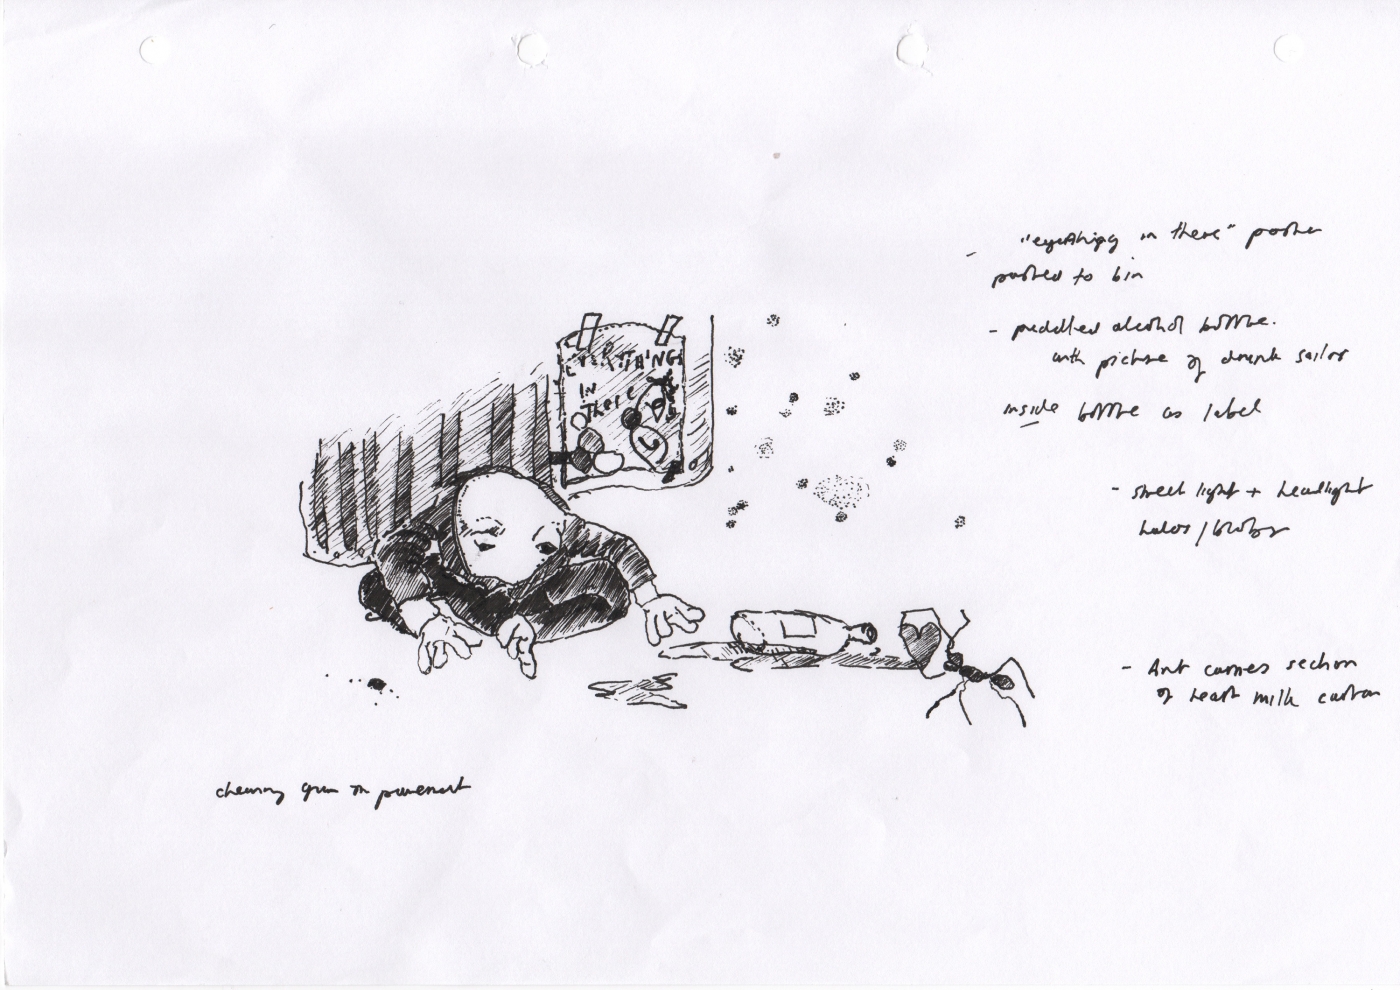 EVERYTHING
IN
There
- "everything in there" poster
pasted to bin
- puddled alcohol bottle.
with picture of drunk sailor
inside bottle as label
- street light + headlight
halos/blobs
- Ant carries section
of heart milk carton
chewing gum on pavement